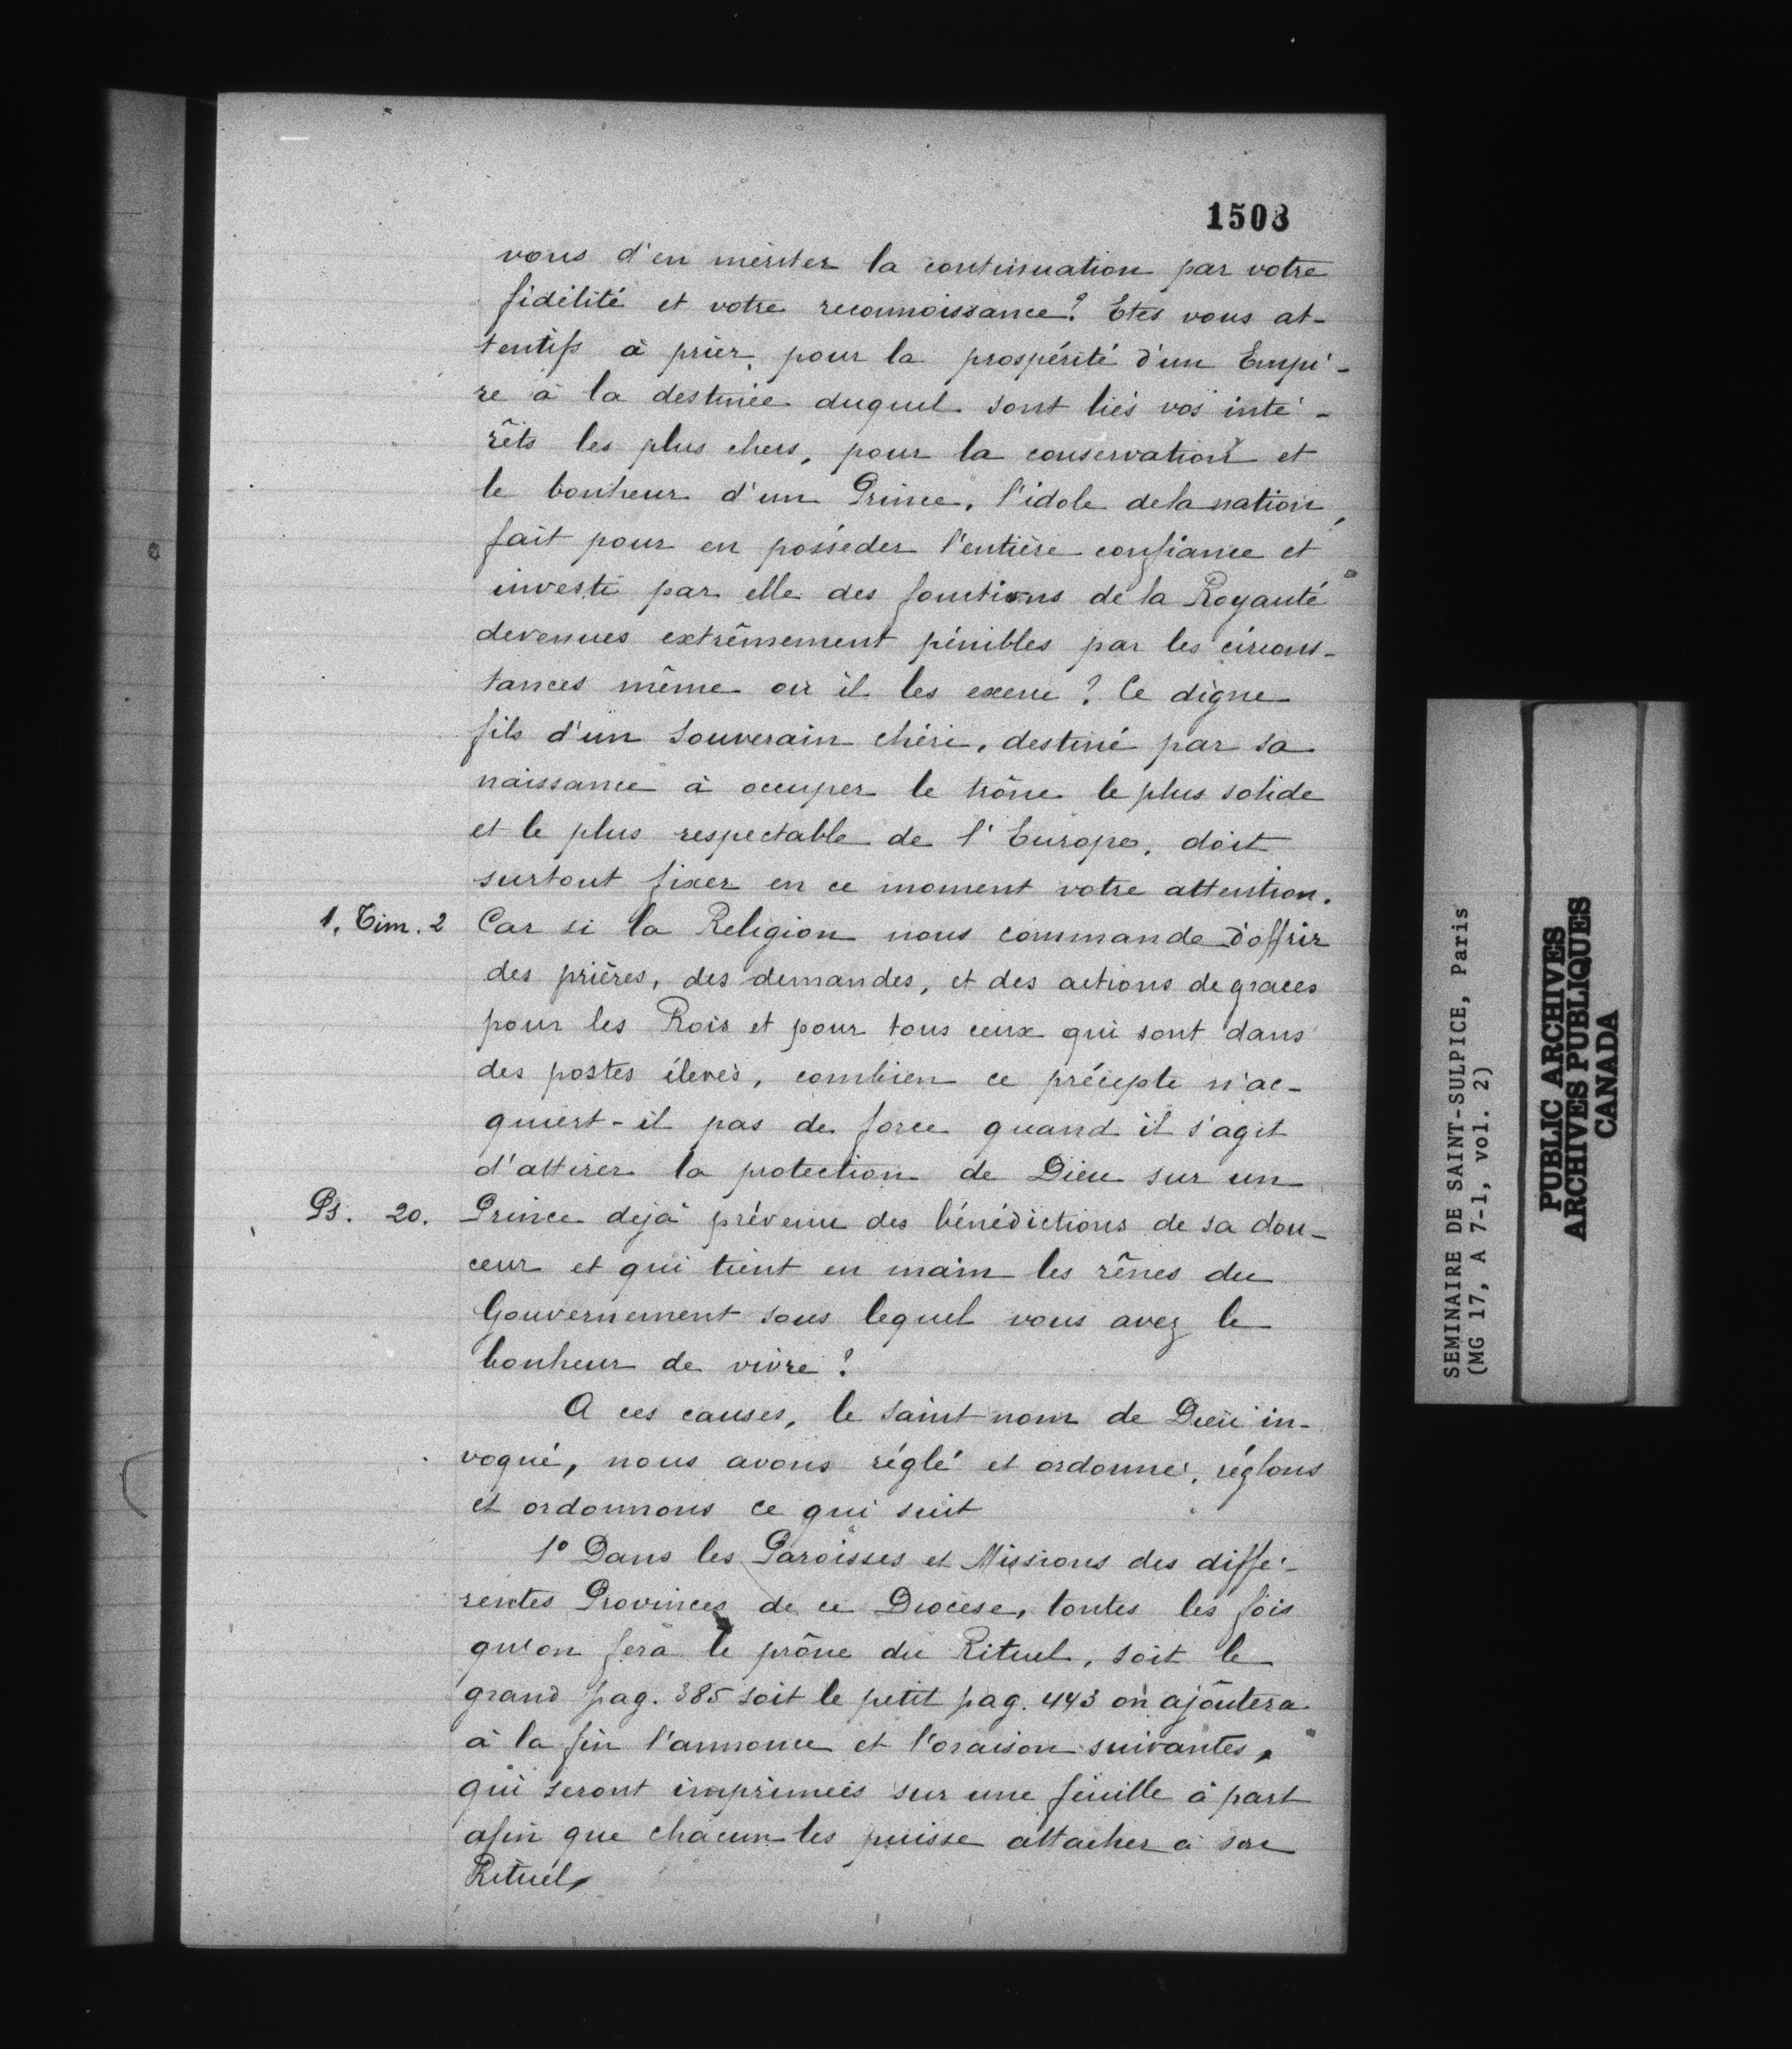 1508
vous d'en mériter la continuation par votre
fidélité et votre reconnoissance? Etes vous at-
tentifs à prier, pour la prospérité d'un Empi-
re à la destinée duquel sont liés vos inté-
rêts les plus chers, pour la conservation et
le bonheur d'un Prince, l'idole de la nation,
fait pour en posséder l'entière confiance et
investi par elle des fonctions de la Royauté
devenues extrêmement pénibles par les circons-
tances même où il les exerce? Ce digne
fils d'un Souverain chéri, destiné par sa
naissance à occuper le trône le plus solide
et le plus respectable de l'Europe, doit
surtout fixer en ce moment votre attention.
1. Tim. 2 Car si la Religion nous commande d'offrir
des prières, des demandes, et des actions de graces
pour les Rois et pour tous ceux qui sont dans
des postes élevés, combien ce précepte n'ac-
quiert-il pas de force quand il s'agit
d'attirer la protection de Dieu sur un
Ps. 20. Prince déjà prévenu des bénédictions de sa dou-
ceur et qui tient en main les rênes du
Gouvernement sous lequel vous avez le
bonheur de vivre?
A ces causes, le saint nom de Dieu in-
voqué, nous avons réglé et ordonné, réglons
et ordonnons ce qui suit
1° Dans les Paroisses et Missions des diffé-
rentes Provinces de ce Diocèse, toutes les fois
qu'on fera le prône du Rituel, soit le
grand pag. 385 soit le petit pag. 443 on ajoutera
à la fin l'annonce et l'oraison suivantes,
qui seront imprimées sur une feuille à part
afin que chacun les puisse attacher à son
Rituel,
SEMINAIRE DE SAINT-SULPICE, Paris
(MG 17, A 7-1, vol. 2)
PUBLIC ARCHIVES
ARCHIVES PUBLIQUES
CANADA